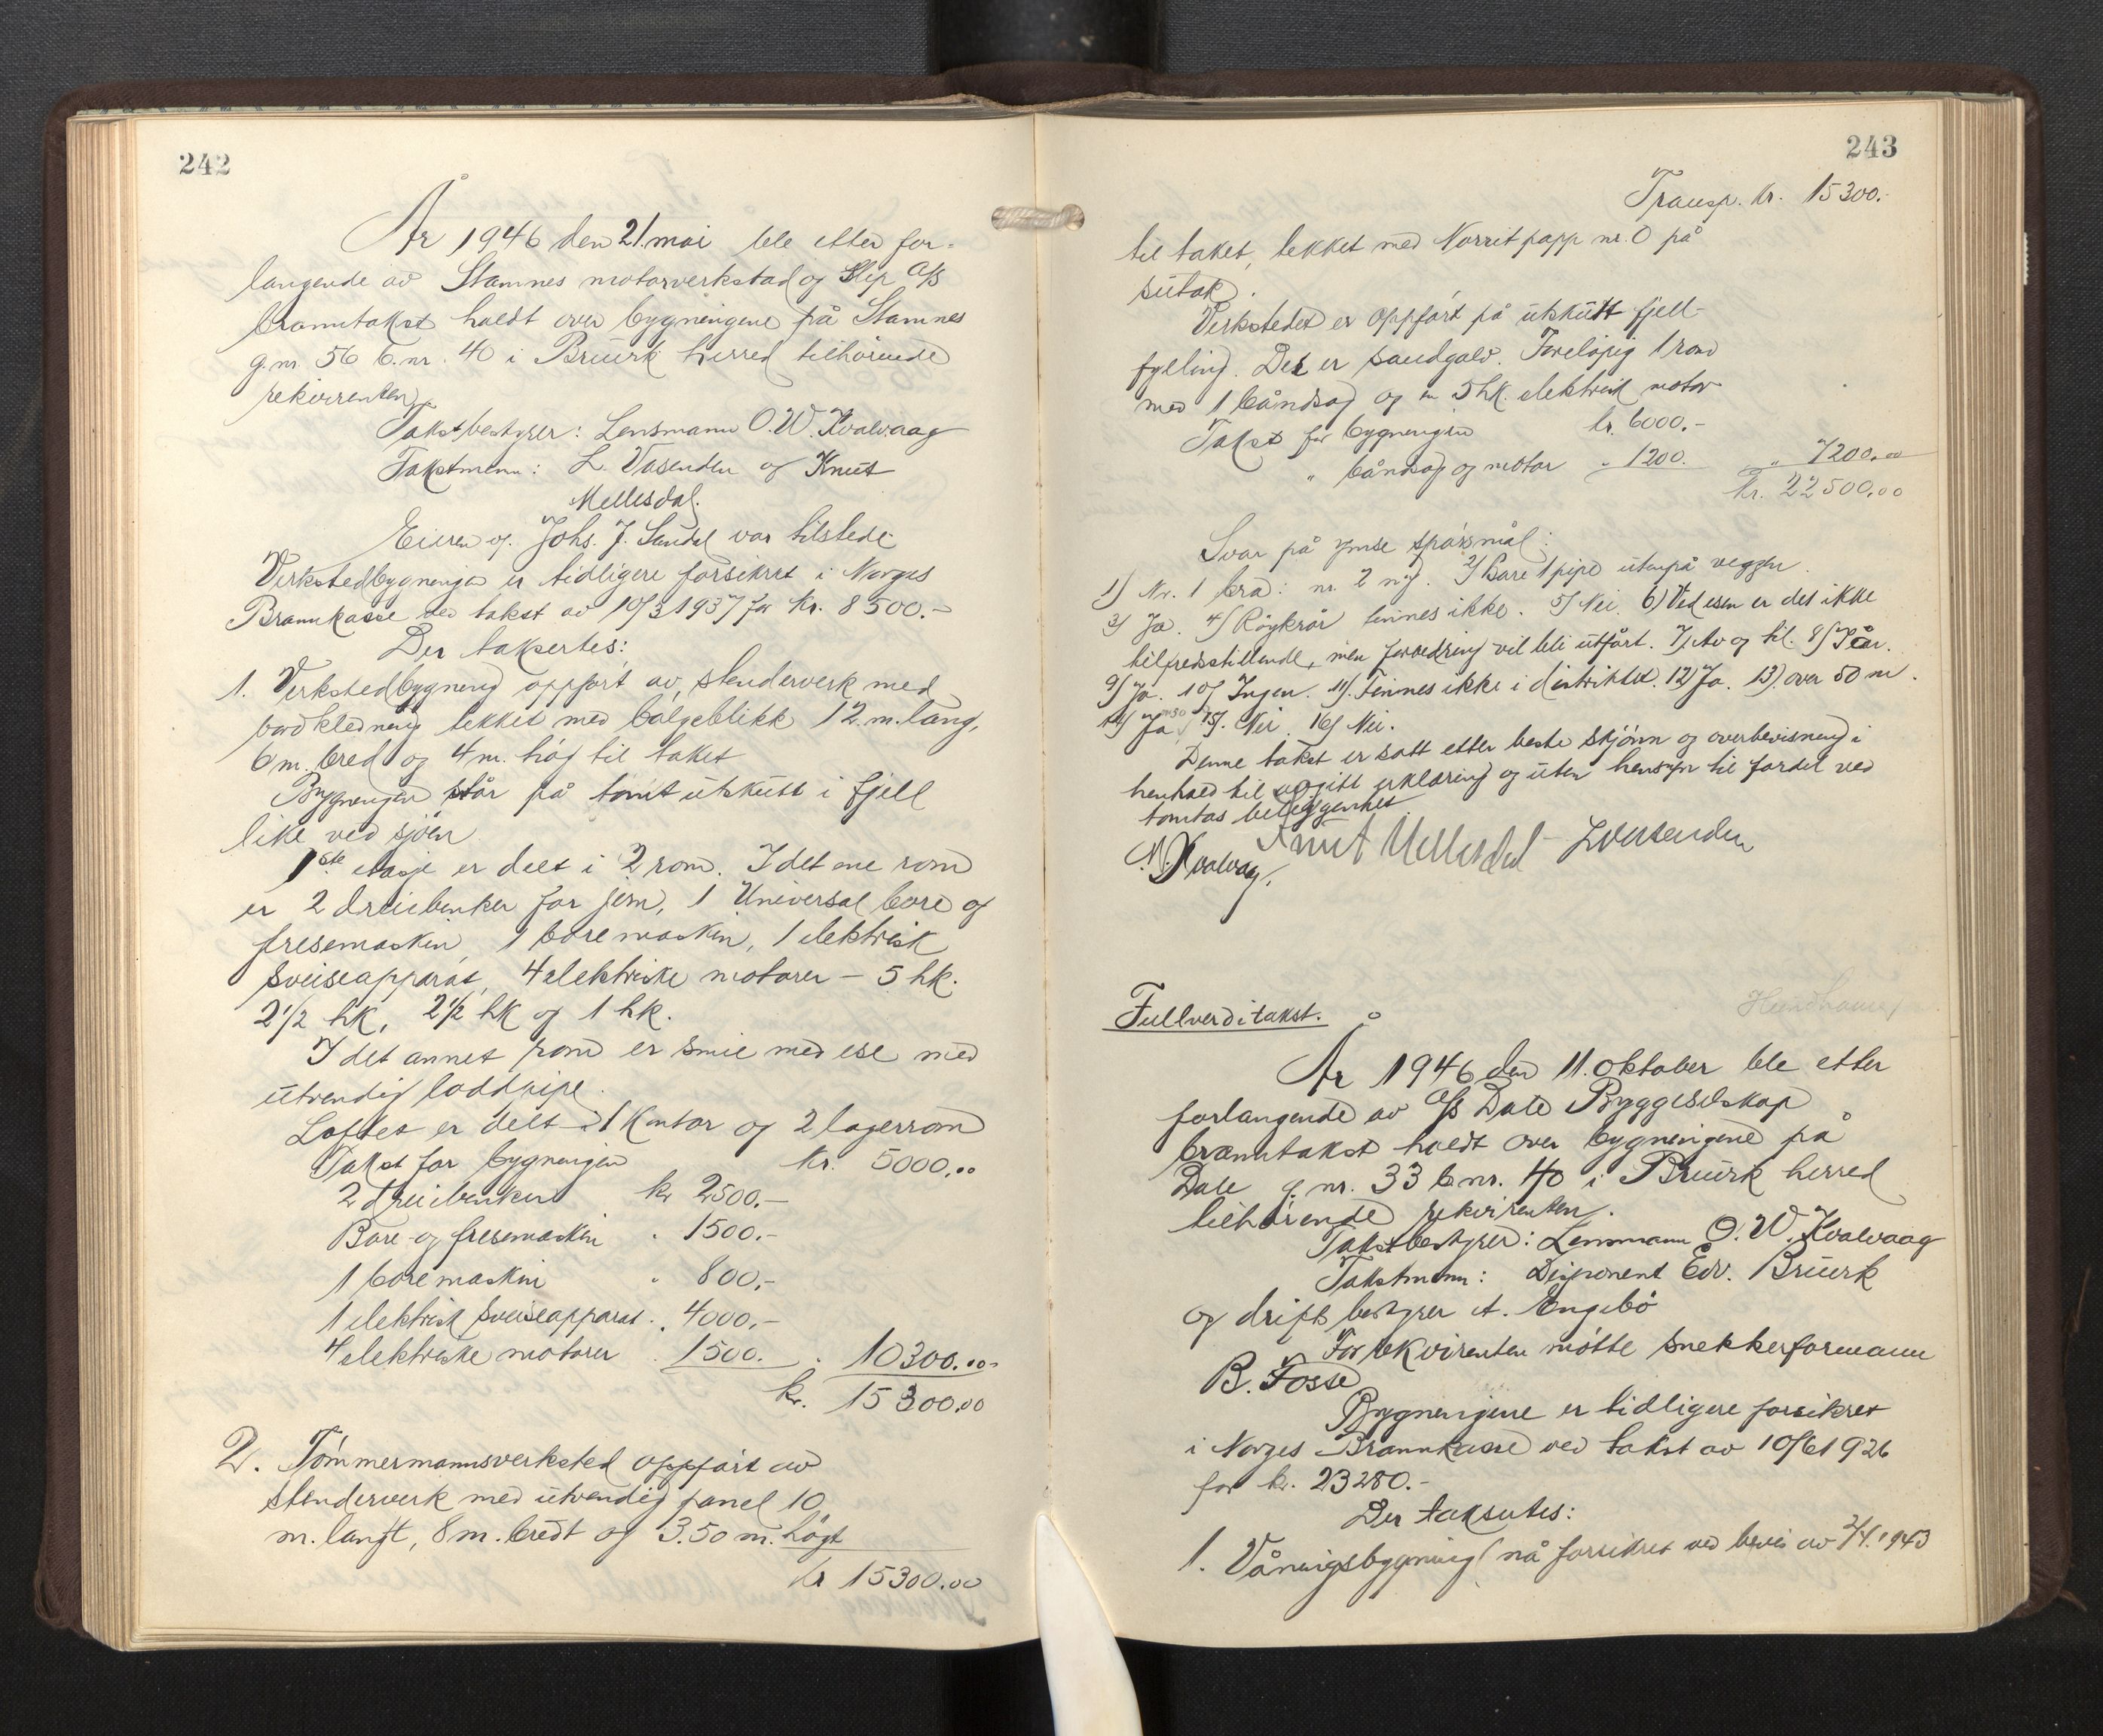 242
År 1946 den 21. mai ble etter for-
langende av Stamnes motorverksted og Slip A/S
branntakst holdt over bygningene på Stamnes
g.nr. 56 b.nr. 40 i Bruvik herred tilhörende
rekvirenten.
Takstbestyrer: Lensmann O. W. Kvalvaag
Takstmenn: L. Vasenden og Knut
Mellesdal.
Eieren v. Johs. J. Sandal var tilstede
Verkstedbygningen er tidligere forsikret i Norges
Brannkasse ved takst av 10/3 1937 for kr. 8500.-
Der takseres:
1. Verkstedbygning oppfört av stenderverk med
bordkledning tekket med bölgeblikk 12 m. lang,
6 m. bred og 4 m. höy til taket
Bygningen står på tomt utskutt i fjell
like ved sjöen
1ste etasje er delt i 2 rom. I det ene rom
er 2 dreiebenker for jern, 1 Universal bore og
fresemaskin, 1 boremaskin, 1 elektrisk
sveiseapparat, 4 elektriske motorer – 5 hk.
2 1/2 hk, 2 1/2 hk og 1 hk.
I det annet rom er smie med ese med
utvendig loddpipe.
Loftet er delt i 1 kontor og 2 lagerrom
Takst for bygningen kr. 5000,00
2 dreiebenker kr 2500.-
Bore- og fresemaskin " 1500.-
1 boremaskin " 800,-
1 elektrisk sveiseapparat " 4000,-
4 elektriske motorer " 1500. " 10300.00
kr. 15300,00
2. Tömmermannsverksted oppfört av
stenderverk med utvendig panel 10
m. langt, 8 m. bredt og 3.50 m. högt
kr 15300.00
243
Transp. kr. 15300.-
til taket, tekket med Norrit papp nr. 0 på
sutak.
Verkstedet er oppfört på utskutt fjell-
fylling. Det er sandgolv. Foreløpig 1 rom
med 1 båndsag og en 5 hk. elektrisk motor
Takst for bygningen kr. 6000.-
" båndsag og motor " 1200. " 7200.00
Kr. 22500,00
Svar på ymse spörsmål:
1) Nr. 1 bra: nr. 2 ny. 2) Bare 1 pipe utenpå veggen.
3) Ja. 4) Röykrör finnes ikke. 5) Nei. 6) Ved esen er det ikke
tilfredsstillende, men forbedring vil bli utfört. 7) Av og til. 8) I år.
9) Ja. 10) Ingen. 11). Finnes ikke i distriktet. 12) Ja. 13). over 50 m.
14) Ja 15). Nei. 16) Nei.
Denne takst er satt etter beste skjönn og overbevisning i
henhold til avgitt erklæring og uten hensyn til fordel ved
tomtas beliggenhet
Kvalvaag. Knut Mellesdal L Vasenden
Fullverditakst.
År 1946 den 11. oktober ble etter
forlangende av A/S Dale Byggeselskap
branntakst holdt over bygningene på
Dale g.nr. 33 b.nr. 40 i Bruvik herred
tilhörende rekvirenten.
Takstbestyrer: Lensmann O. W. Kvalvaag
Takstmenn: Disponent Edv. Bruvik
og driftsbestyrer A. Engebö
For rekvirenten mötte snekkerformann
B. Fosse
Bygningene er tidligere forsikret
i Norges Brannkasse ved takst av 10/6 1926
for kr. 23280.-
Der takseres:
1. Våningsbygning (nå forsikret ved bevis av 2/4. 1943